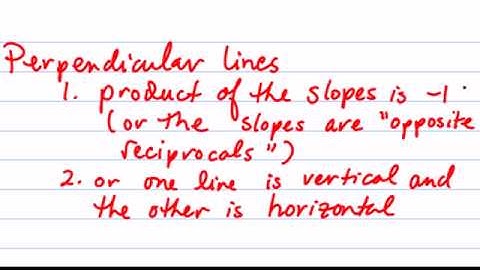 Perpendicular lines
1. product of the slopes is -1.
(or the slopes are "opposite
reciprocals")
2. or one line is vertical and
the other is horizontal